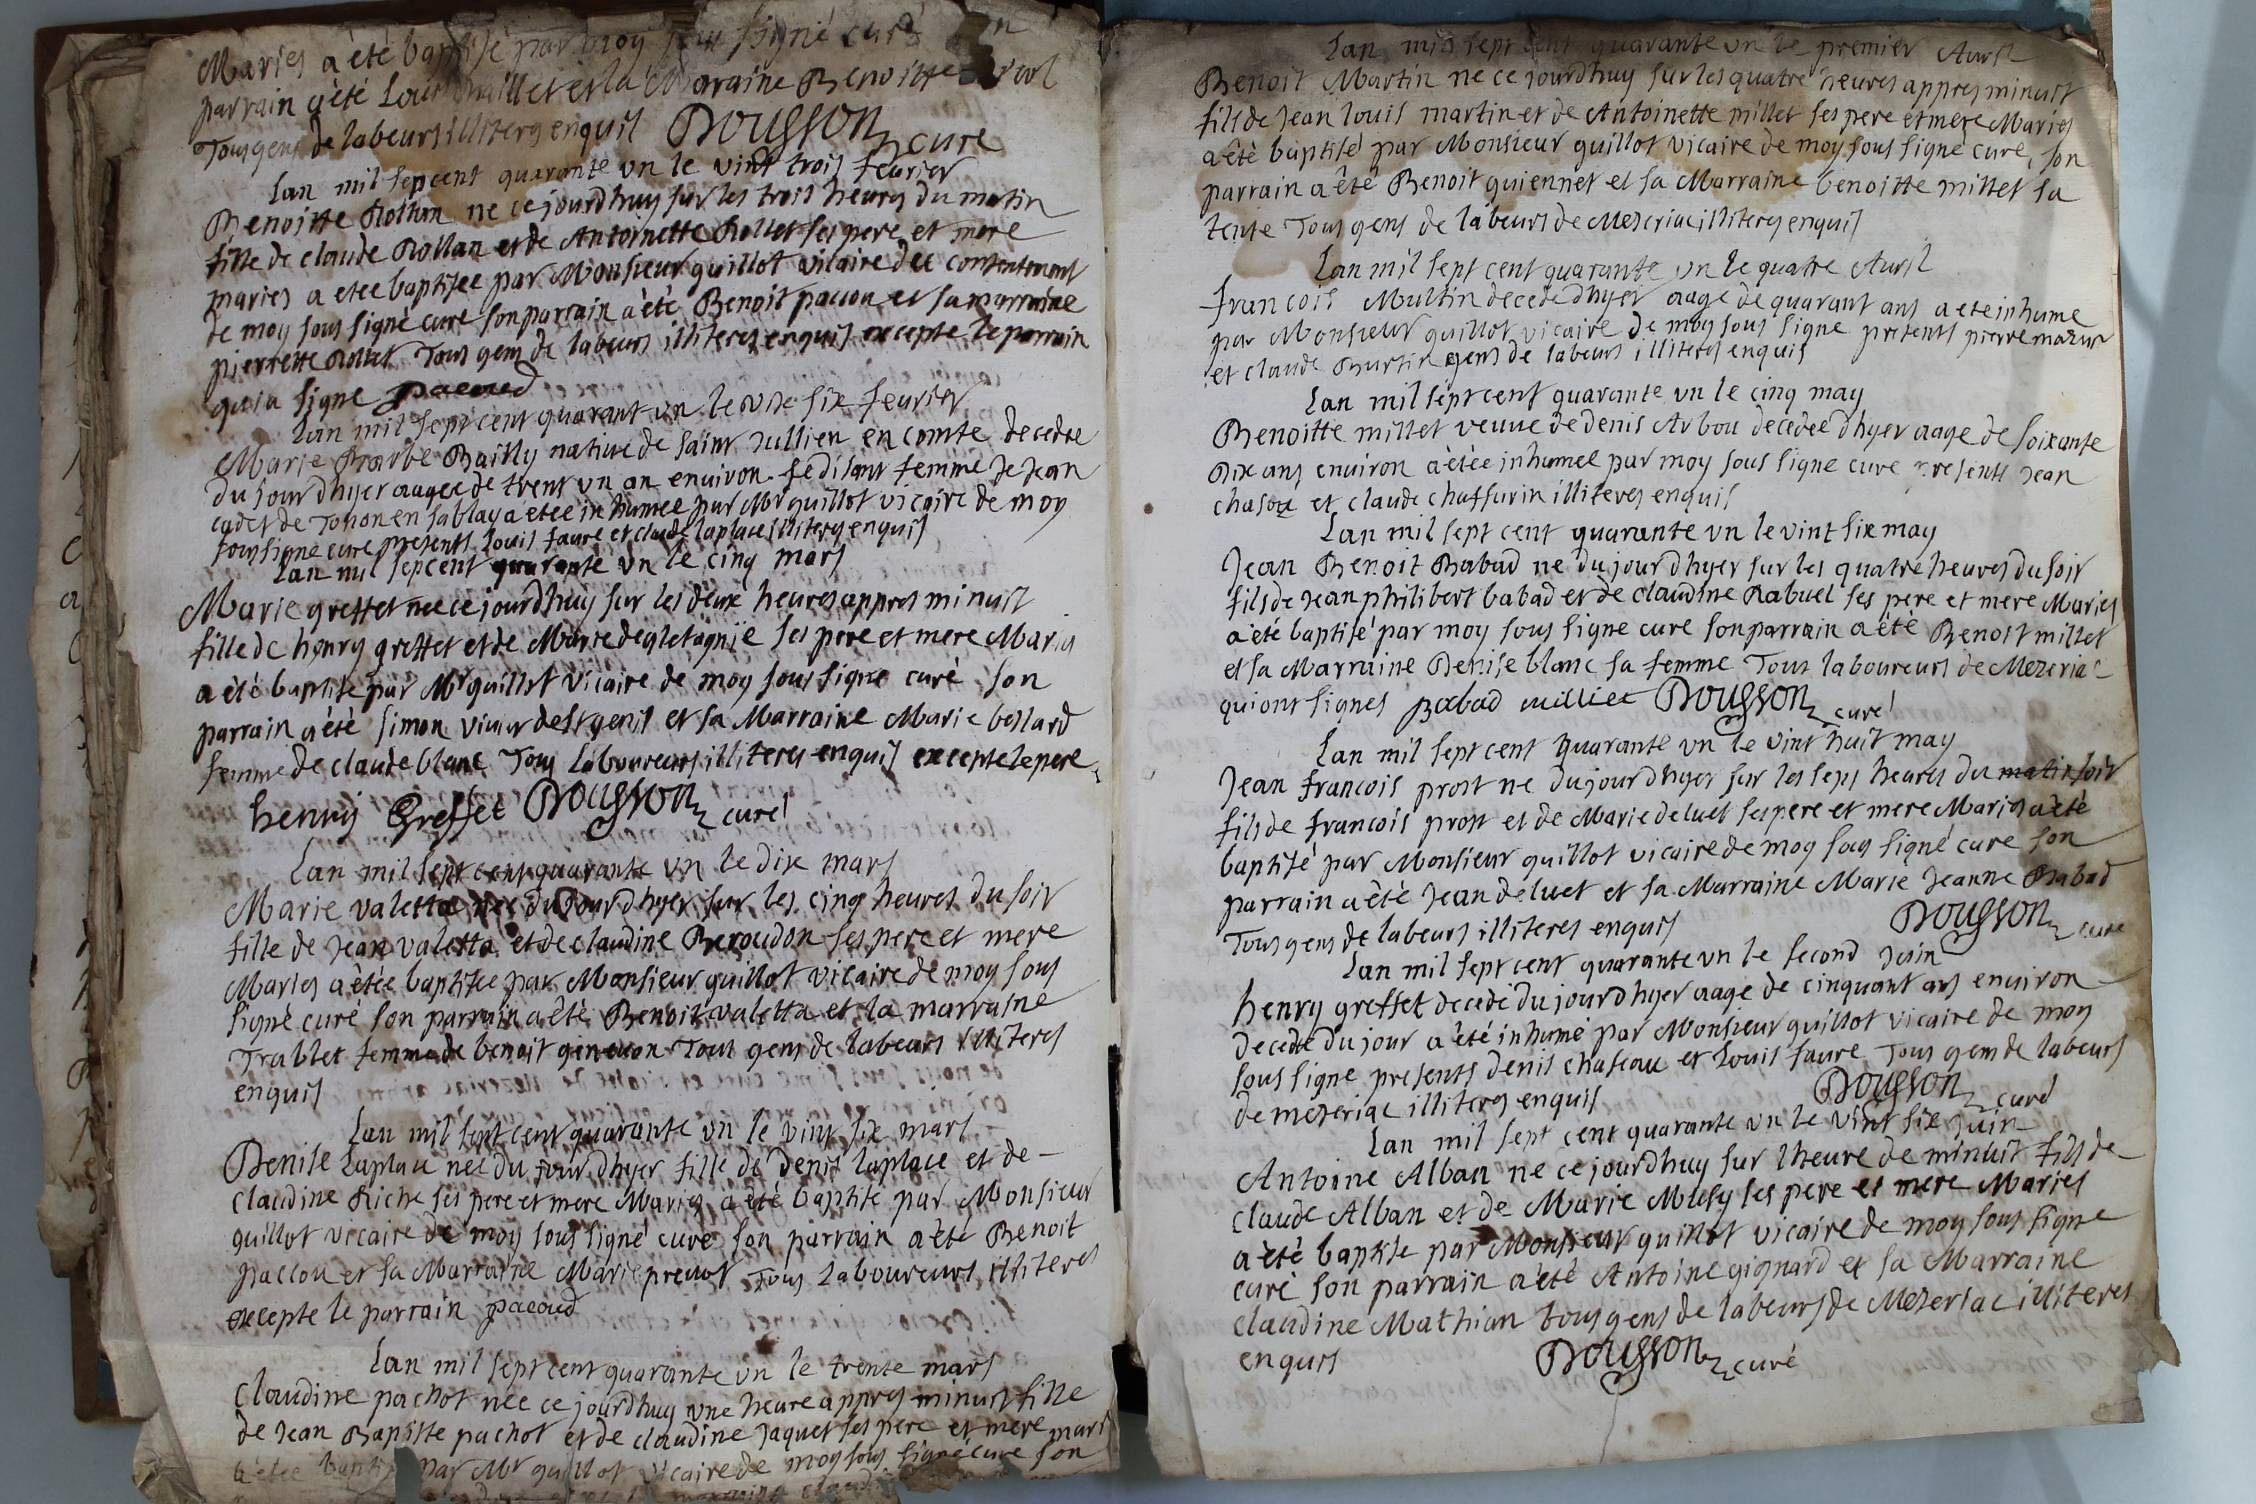 Maries a èté baptisé par moy sous signé curé son
parrain a èté Louis millet et la Marraine Benoitte
Tous gens de labeurs illiteres enquis Dousson curé
Lan mil sepcent quarante vn le vint trois feurier
Benoitte Rollan ne ce jourdhuy sur les trois heures du matin
fille de claude Rollan et de Antoinette Rollet ses pere et mere
maries a etee baptisee par Monsieur quillot vicaire du contentement
de moy sous signé cure son parrain a èté Benoit paccou et sa marraine
pierrette Rollet Tous gens de labeurs illiteres enquis excepte le parrain
qui a signe pacoud
Lan mil sept cent quarant vn le vint six feurier
Marie Barbe Bailly natiue de saint Jullien en comte decedee
du jour dhyer aagee de trent vn an enuiron se disant femme de Jean
cadet de Tonon en sablay a etee inhumee par Mr quillot vicaire de moy
sous signe cure presents Louis faure et claude laplace illiteres enquis
Lan mil sepcent quarante vn le cinq mars
Marie greffet nee ce jourdhuy sur les deux heures appres minuit
fille de henry greffet et de Marie degletagnie ses pere et mere Maries
a èté baptise par Mr quillot vicaire de moy sous signe curè son
parrain a èté simon viuier de st genis et sa Marraine Marie bellard
femme de claude blanc Tous laboureurs illiteres enquis excepte le pere
henry Greffet Dousson curé
Lan mil sept cent quarante vn le dix mars
Marie valetta nee du jour dhyer sur les cinq heures du soir
fille de Jean valetta et de claudine Beroudon ses pere et mere
Maries a étée baptisée par Monsieur quillot vicaire de moy sous
signé curé son parrain a èté Benoit valetta et la marraine
Trablet femme de benoit geneuon Tous gens de labeurs illiteres
enquis
Lan mil sept cent quarante vn le vint six mars
Denise Laplace nee du jour dhyer fille de denis laplace et de
claudine Riche ses pere et mere Maries a èté baptise par Monsieur
quillot vicaire de moy sous signé curé son parrain a èté Benoit
paccou et sa Marraine Marie preuot Tous laboureurs illiteres
excepte le parrain pacoud
Lan mil sept cent quarante vn le trente mars
Claudine pachot nee ce jourdhuy vne heure appres minuit fille
de Jean Baptiste pachot et de claudine Jaquet ses pere et mere maris
a étee baptisé par Mr quillot vicaire de moy sous signé cure son
Lan mil sept cent quarante vn le premier Auril
Benoit Martin ne ce jourdhuy sur les quatre heures appres minuit
fils de Jean louis martin et de Antoinette millet ses pere et mere Maries
a èté baptisé par Monsieur quillot vicaire de moy sous signe cure, son
parrain a èté Benoit quiennet et sa Marraine benoitte millet sa
tente Tous gens de labeurs de Mezeriac illiteres enquis
Lan mil sept cent quarante vn le quatre Auril
francois Multin decede dhyer aage de quarant ans a ete inhume
par Monsieur quillot vicaire de moy sous signe presents pierre mazur
et claude Burtin gens de labeurs illiteres enquis
Lan mil sept cent quarante vn le cinq may
Benoitte millet veuue de denis Arbou decedee dhyer aage de soixante
dix ans enuiron a étée inhumee par moy sous signe cure presents Jean
chasou et claude chaffurin illiteres enquis
Lan mil sept cent quarante vn le vint six may
Jean Benoit Babad ne du jour dhyer sur les quatre heures du soir
fils de Jean philibert babad et de claudine Rabuel ses pere et mere Maries
a èté baptisé par moy sous signe cure son parrain a èté Benoit millet
et sa Marraine Denise blanc sa femme Tous laboureurs de Mezeriac
qui ont signes Babad milliet Dousson curé
Lan mil sept cent quarante vn le vint huit may
Jean francois prost ne du jour dhyer sur les sept heures du matin soir
fils de francois prost et de Marie deluet ses pere et mere Maries a èté
baptisé par Monsieur quillot vicaire de moy sous signé cure son
parrain a èté Jean deluet et sa Marraine Marie Jeanne Babad
Tous gens de labeurs illiteres enquis Dousson cure
Lan mil sept cent quarante vn le second Juin
henry greffet decedé du jour dhyer aage de cinquant ans enuiron
decede du jour a èté inhumé par Monsieur quillot vicaire de moy
sous signe presents denis chateau et louis faure Tous gens de labeurs
de mezeriac illiteres enquis Dousson curé
Lan mil sept cent quarante vn le vint six juin
Antoine Alban ne ce jourdhuy sur lheure de minuit fils de
claude Alban et de Marie Musy ses pere et mere Maries
a èté baptise par Monsieur quillot vicaire de moy sous signe
curé son parrain a èté Antoine gignard et sa Marraine
claudine Mathian tous gens de labeurs de Mezeriac illiteres
enquis Dousson curé